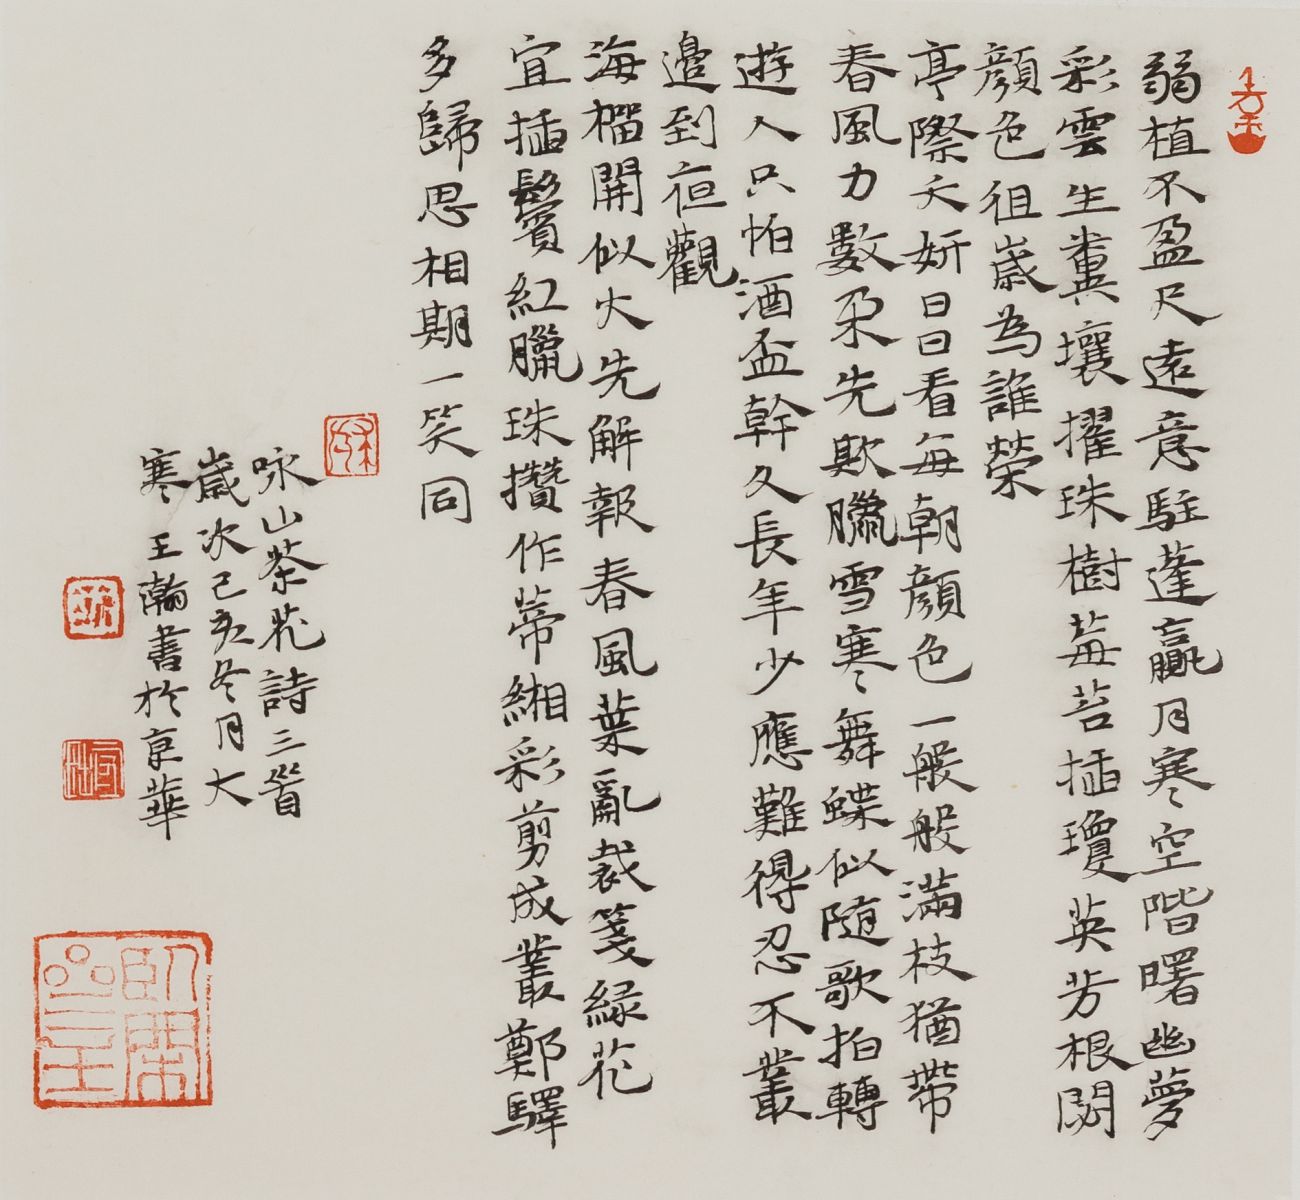 弱植不盈尺遠意駐蓬瀛月寒空階曙幽夢
彩雲生糞壤擢珠樹莓苔插瓊英芳根閟
顏色徂歲為誰榮
亭際夭妍日日看每朝顏色一般般滿枝猶帶
春風力數朵先欺臘雪寒舞蝶似隨歌拍轉
遊人只怕酒盃幹久長年少應難得忍不叢
邊到夜觀
海榴開似火先解報春風葉亂裁箋綠花
宜插鬢紅臘珠攢作蒂緗彩剪成叢鄭驛
多歸思相期一笑同
咏山茶花詩三首
歲次己亥冬月大
寒王瀚書於京華